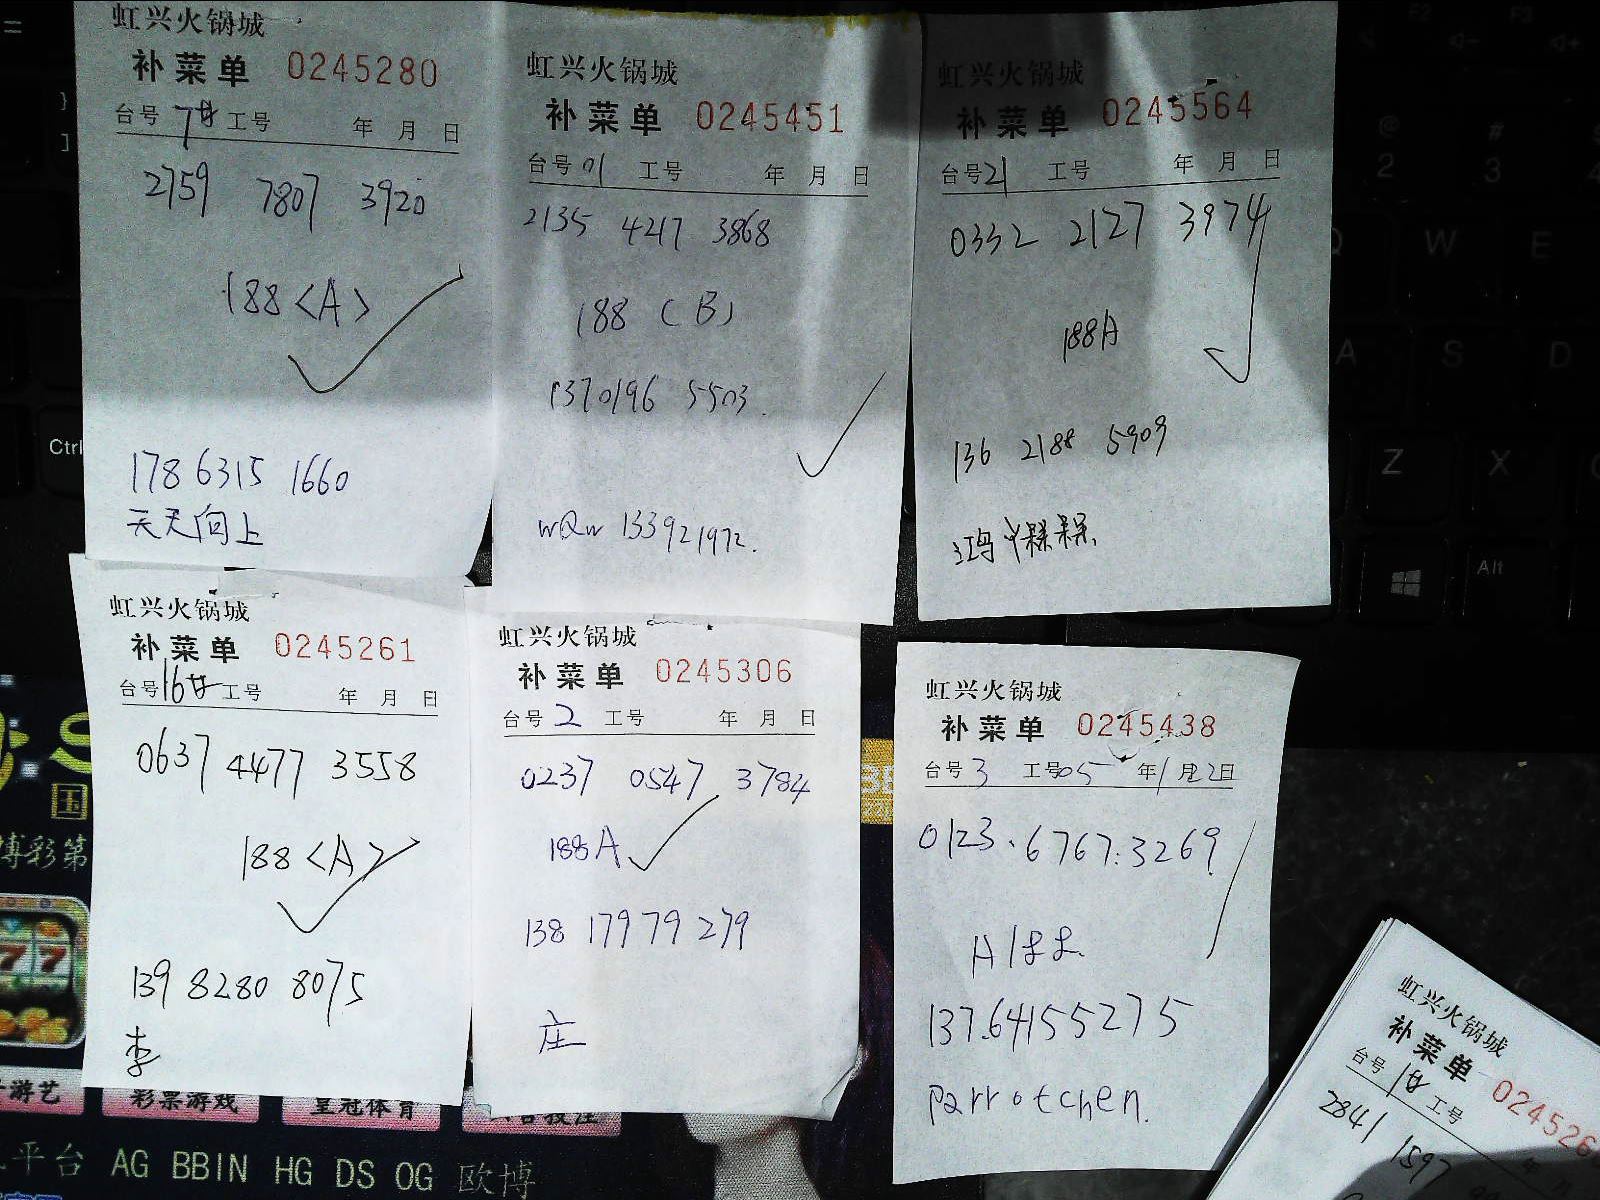 虹兴火锅城
补菜单 0245280
台号 7廿 工号 年 月 日
2759 7807 3920
188<A>
178 6315 1660
天天向上
虹兴火锅城
补菜单 0245451
台号 01 工号 年 月 日
2135 4217 3868
188 (B)
1370196 5503.
wQw 133921972.
虹兴火锅城
补菜单 0245564
台号 21 工号 年 月 日
0332 2127 3974
188A
136 2188 5909
虹兴火锅城
补菜单 0245261
台号 16廿 工号 年 月 日
0637 4477 3558
188<A>
139 8280 8075
李
虹兴火锅城
补菜单 0245306
台号 2 工号 年 月 日
0237 0547 3784
188A
138 179 79 279
庄
虹兴火锅城
补菜单 0245438
台号 3 工号 05 年 1 月 22日
0123.6767.3269
A188.
137.64155275
parrotchen.
虹兴火锅城
补菜单 024526
台号 1廿 工号 年
2841 1597
Ctrl
@
2
#
3
F2
F3
Q
W
E
A
S
D
Z
X
Alt
国
博彩第
游艺
彩票游戏
皇冠体育
平台 AG BBIN HG DS OG 欧博